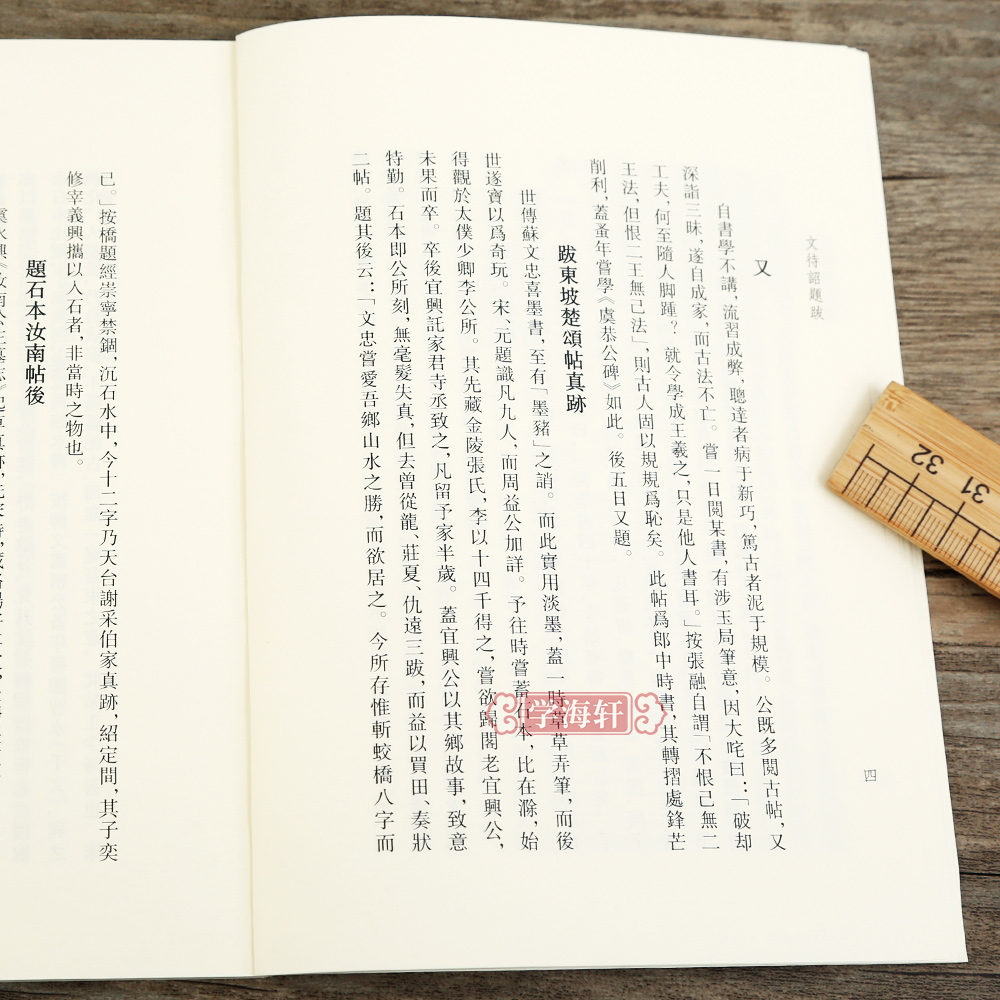 文待詔題跋
四
又
自書學不講,流習成弊,聰達者病于新巧,篤古者泥于規模。公既多閱古帖,又
深詣三昧,遂自成家,而古法不亡。嘗一日閱某書,有涉玉局筆意,因大咤曰:「破却
工夫,何至隨人脚踵?就令學成王羲之,只是他人書耳。」按張融自謂「不恨己無二
王法,但恨二王無己法」,則古人固以規規爲恥矣。此帖爲郎中時書,其轉摺處鋒芒
削利,蓋蚤年嘗學《虞恭公碑》如此。後五日又題。
跋東坡楚頌帖真跡
世傳蘇文忠喜墨書,至有「墨豬」之誚。而此實用淡墨,蓋一時草草弄筆,而後
世遂寶以爲奇玩。宋、元題識凡九人,而周益公加詳。予往時嘗蓄石本,比在滁,始
得觀於太僕少卿李公所。其先藏金陵張氏,李以十四千得之,嘗欲歸閣老宜興公,
未果而卒。卒後宜興託家君寺丞致之,凡留予家半歲。蓋宜興公以其鄉故事,致意
特勤。石本即公所刻,無毫髮失真,但去曾從龍、莊夏、仇遠三跋,而益以買田、奏狀
二帖。題其後云:「文忠嘗愛吾鄉山水之勝,而欲居之。今所存惟斬蛟橋八字而
已。」按橋題經崇寧禁錮,沉石水中,今十二字乃天台謝采伯家真跡,紹定間,其子奕
修宰義興攜以入石者,非當時之物也。
題石本汝南帖後
学海轩
32
31